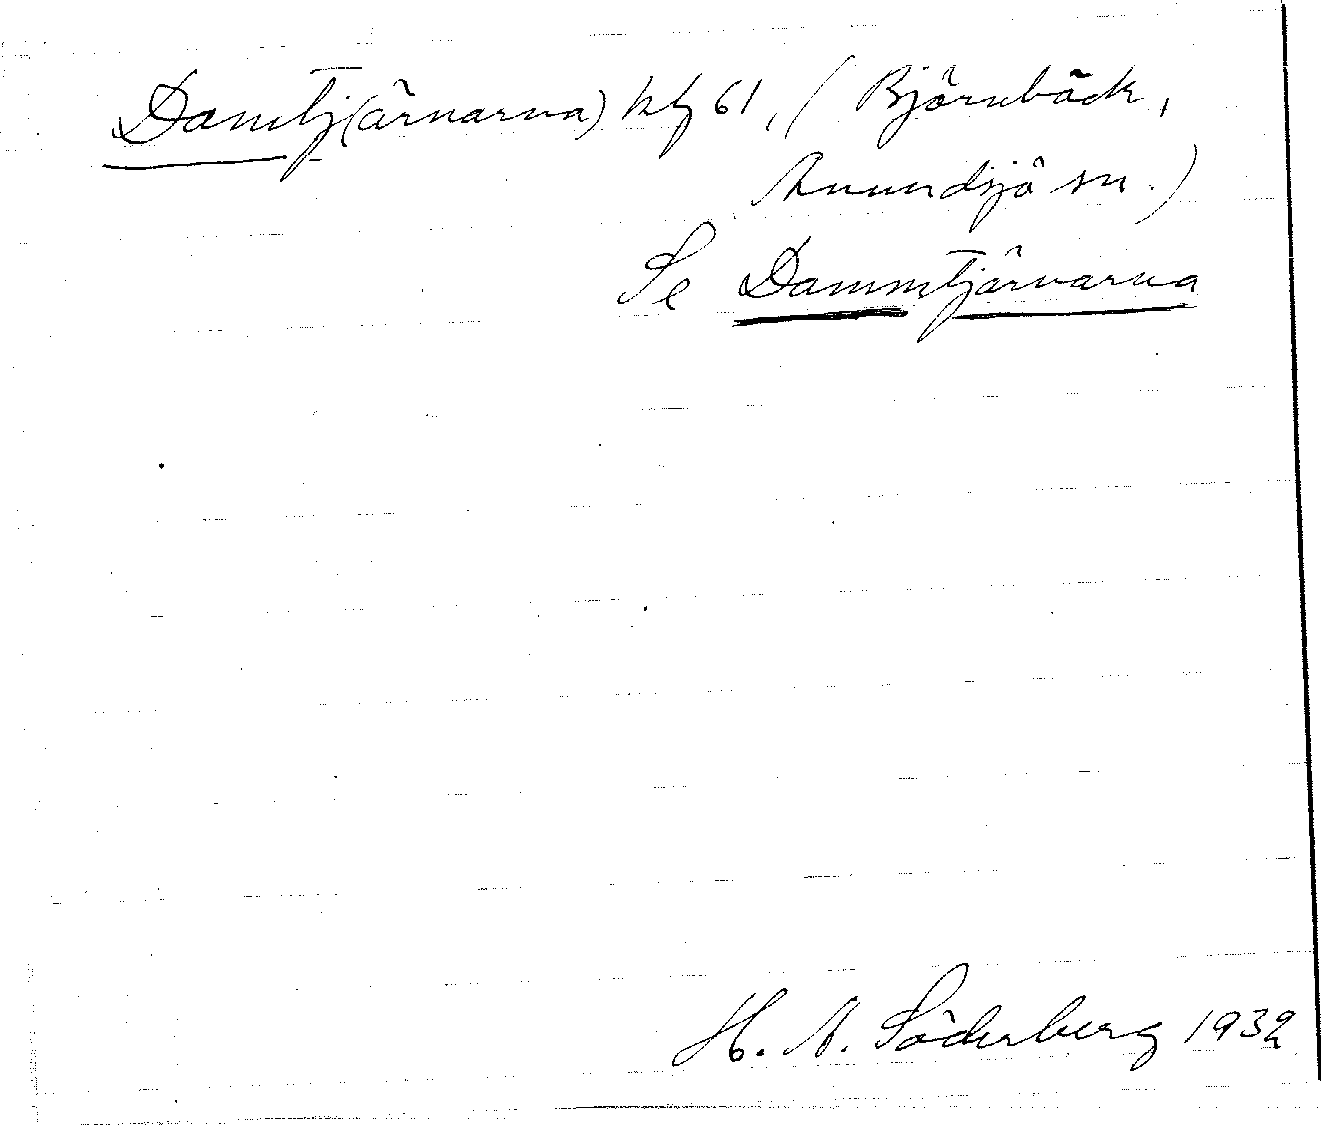 Damtj(ärnarna) kbl 61, (Björnbäck,
Anundsjö sn.)
Se Dammtjärnarna
H. A. Söderberg 1932